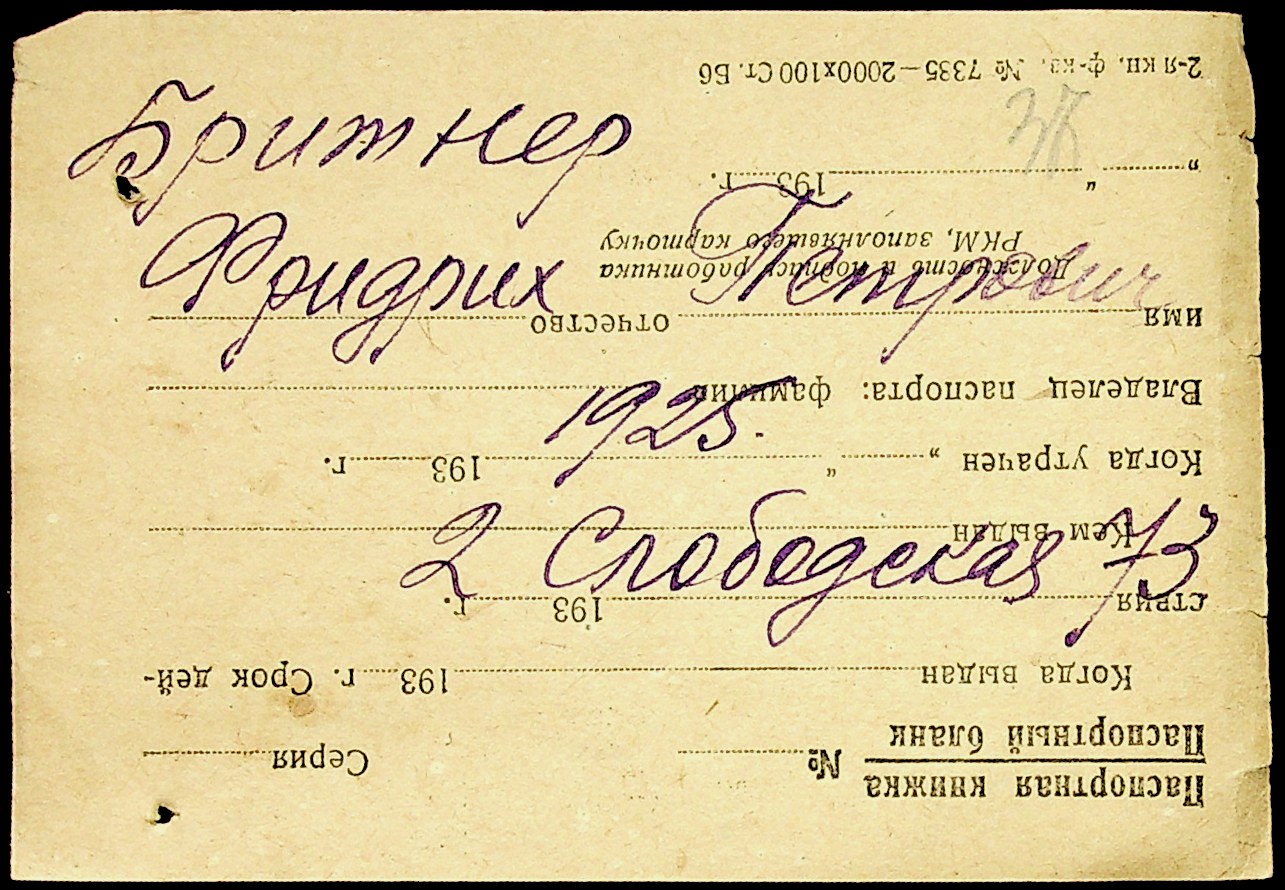 Бритнер
Фридрих Петрович
1925.
2 Слободская 73
Паспортная книжка
Паспортный бланк
№ Серия
Когда выдан 193 г. Срок дей-
ствия 193 г.
Кем выдан
Когда утрачен „ “ 193 г.
Владелец паспорта: фамилия
имя отчество
Должность и подпись работника
РКМ, заполнявшего карточку
„ “ 193 г.
2-я кн. ф-ка. № 7335—2000х100 Ст. Бб